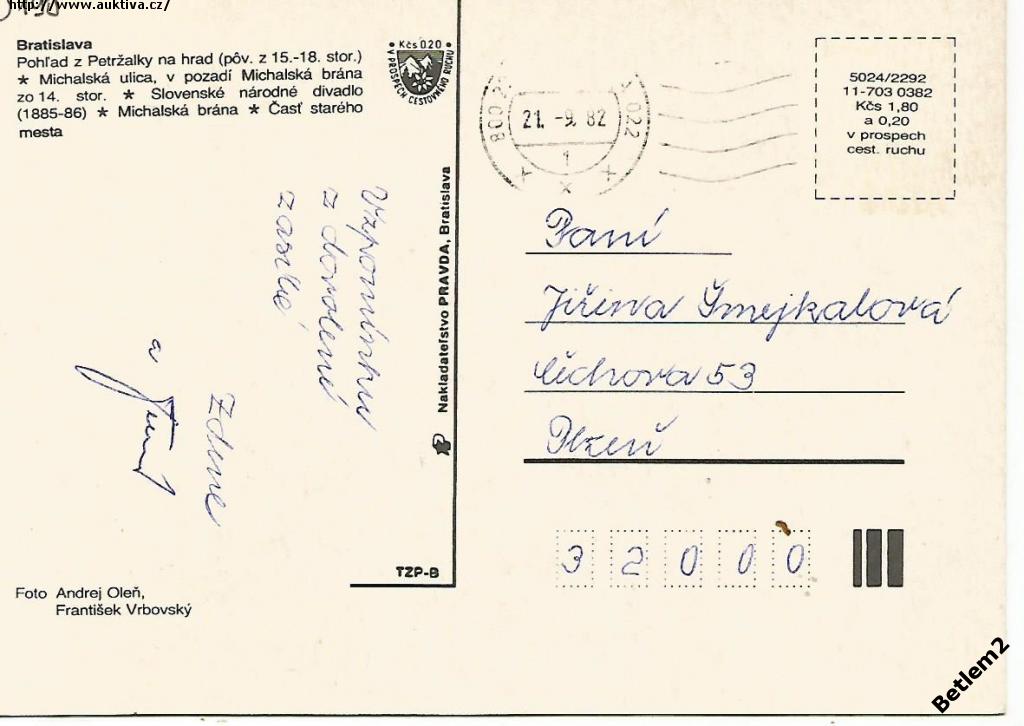 http://www.auktiva.cz/
Bratislava
Pohľad z Petržalky na hrad (pôv. z 15.-18. stor.)
* Michalská ulica, v pozadí Michalská brána
zo 14. stor. * Slovenské národné divadlo
(1885-86) * Michalská brána * Časť starého
mesta
• Kčs 0.20 •
V PROSPECH CESTOVNÉHO RUCHU
21. -9. 82
022
1
5024/2292
11-703 0382
Kčs 1,80
a 0,20
v prospech
cest. ruchu
Vzpomínku
z dovolené
zasílá
Zdena
a
Nakladateľstvo PRAVDA, Bratislava
Paní
Jiřina Šmejkalová
Čechova 53
Plzeň
32000
TZP-B
Foto Andrej Oleň,
František Vrbovský
Betlem2